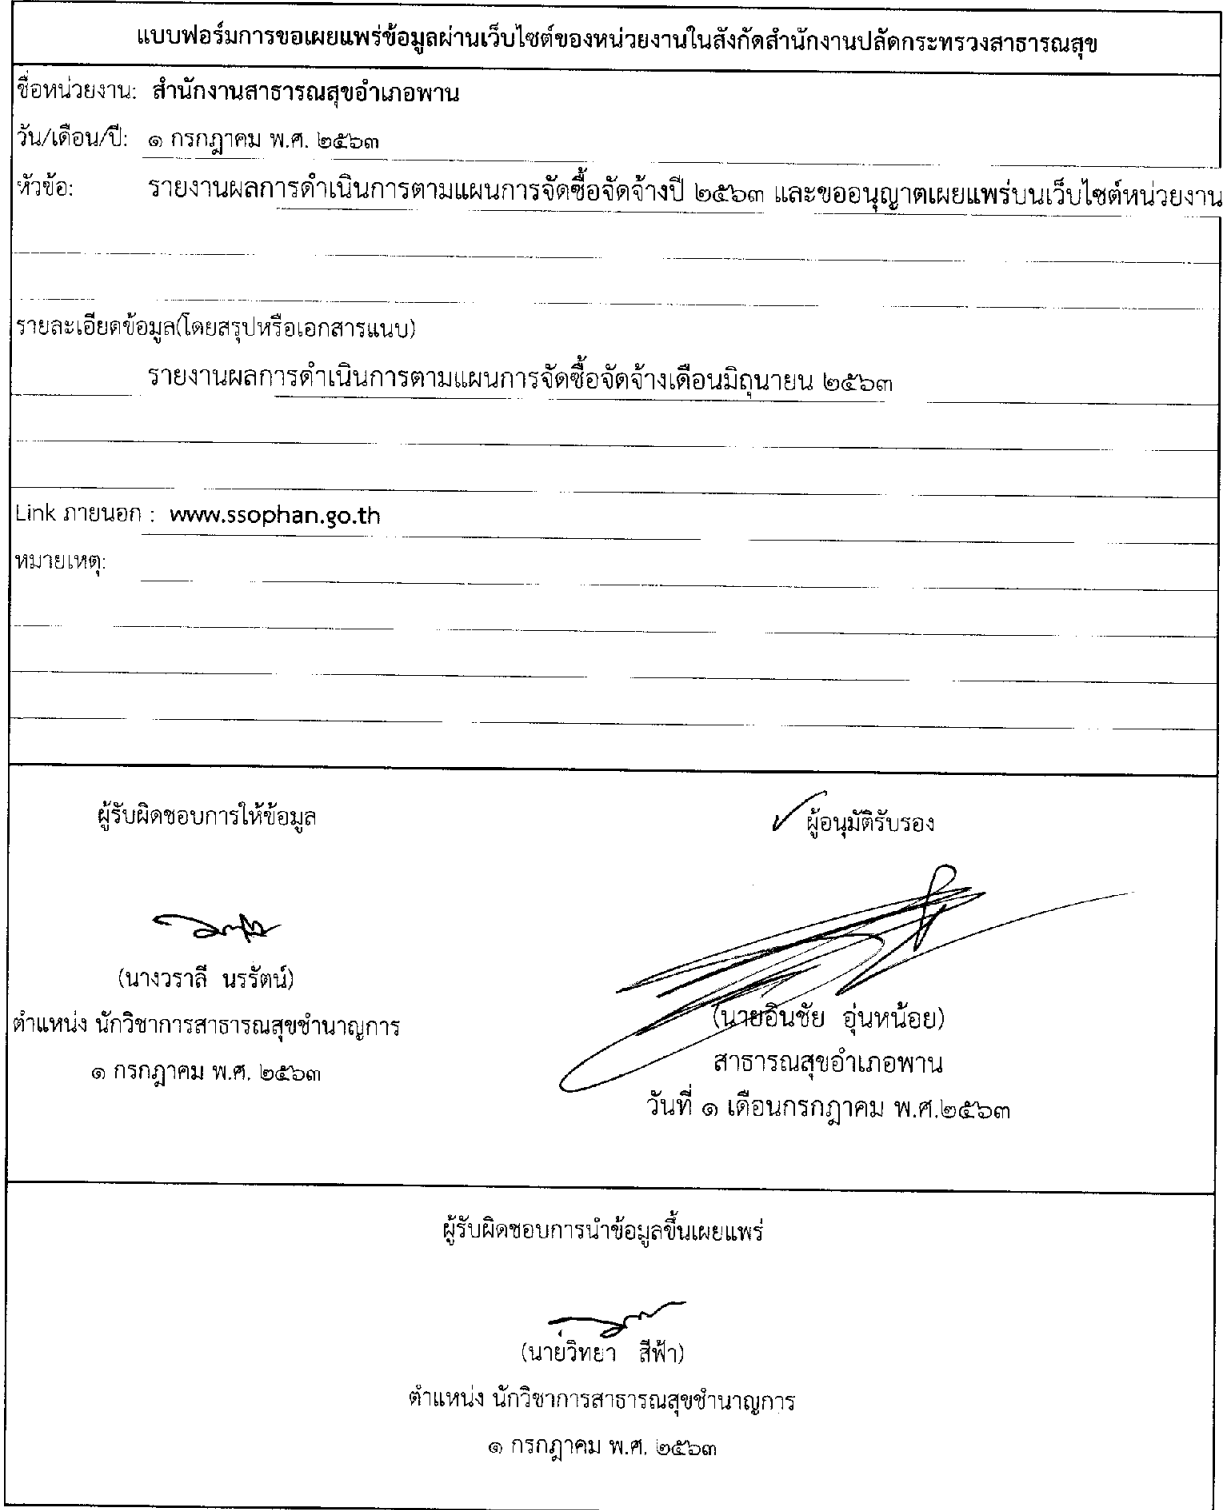 แบบฟอร์มการขอเผยแพร่ข้อมูลผ่านเว็บไซต์ของหน่วยงานในสังกัดสำนักงานปลัดกระทรวงสาธารณสุข
ชื่อหน่วยงาน: สำนักงานสาธารณสุขอำเภอพาน
วัน/เดือน/ปี: ๑ กรกฎาคม พ.ศ. ๒๕๖๓
หัวข้อ: รายงานผลการดำเนินการตามแผนการจัดซื้อจัดจ้างปี ๒๕๖๓ และขออนุญาตเผยแพร่บนเว็บไซต์หน่วยงาน
รายละเอียดข้อมูล(โดยสรุปหรือเอกสารแนบ)
รายงานผลการดำเนินการตามแผนการจัดซื้อจัดจ้างเดือนมิถุนายน ๒๕๖๓
Link ภายนอก : www.ssophan.go.th
หมายเหตุ:
ผู้รับผิดชอบการให้ข้อมูล
(นางวราลี นรรัตน์)
ตำแหน่ง นักวิชาการสาธารณสุขชำนาญการ
๑ กรกฎาคม พ.ศ. ๒๕๖๓
ผู้อนุมัติรับรอง
(นายอินชัย อุ่นหน้อย)
สาธารณสุขอำเภอพาน
วันที่ ๑ เดือนกรกฎาคม พ.ศ.๒๕๖๓
ผู้รับผิดชอบการนำข้อมูลขึ้นเผยแพร่
(นายวิทยา สีฟ้า)
ตำแหน่ง นักวิชาการสาธารณสุขชำนาญการ
๑ กรกฎาคม พ.ศ. ๒๕๖๓